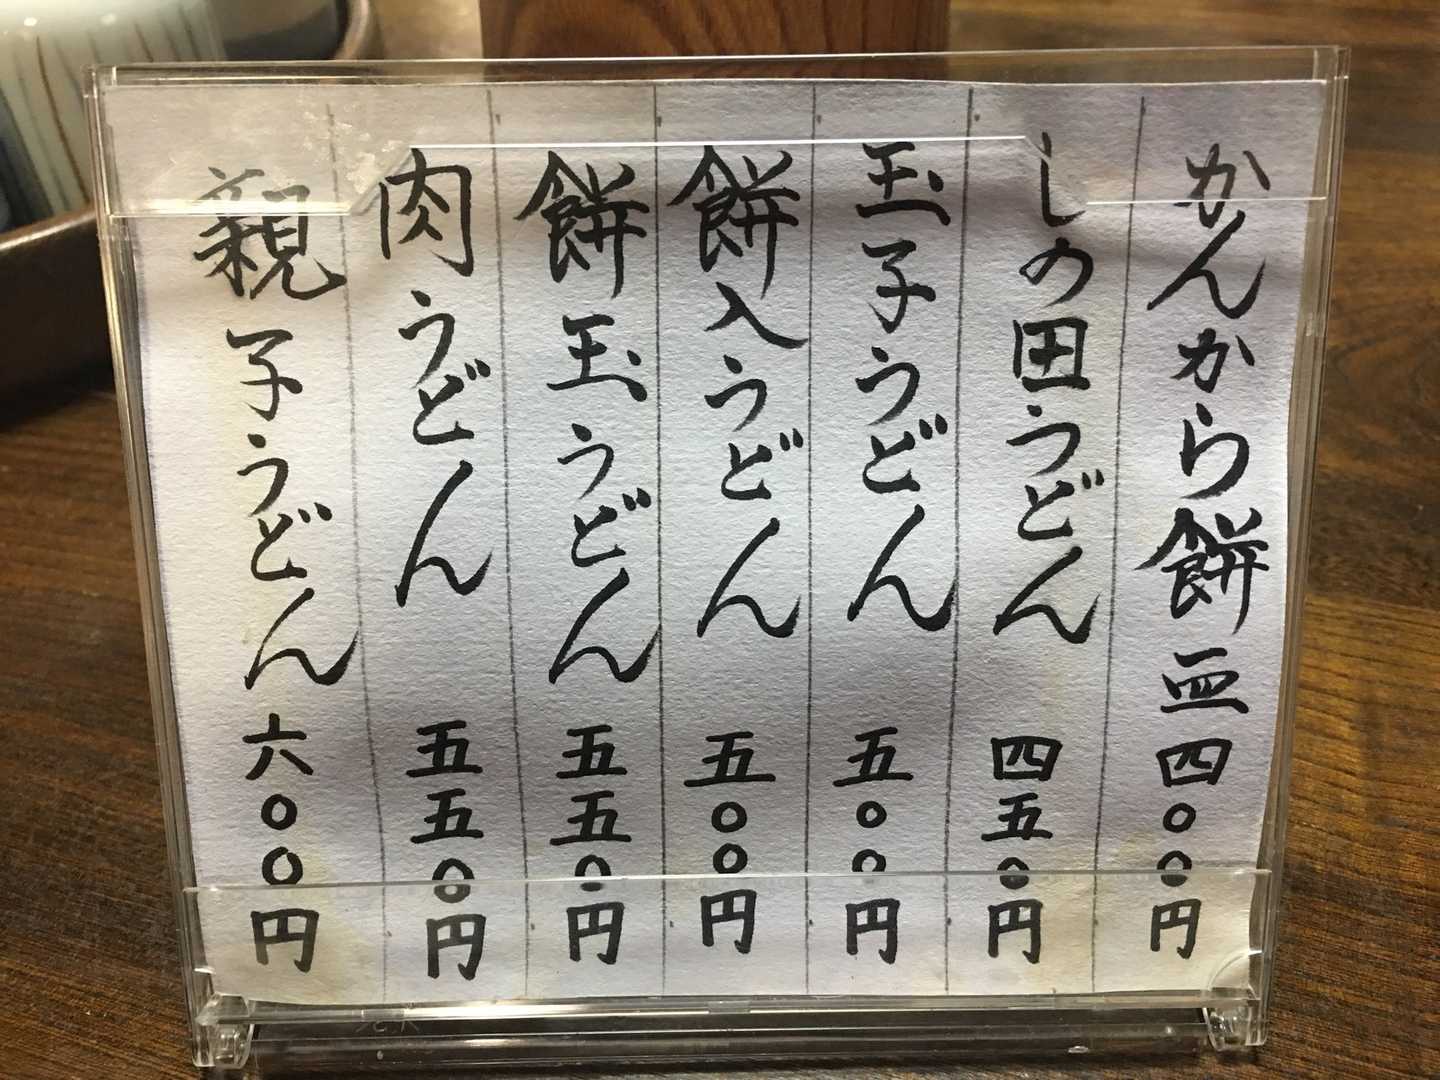 かんから餅一皿四〇〇円
しの田うどん四五〇円
玉子うどん五〇〇円
餅入うどん五〇〇円
餅玉うどん五五〇円
肉うどん五五〇円
親子うどん六〇〇円